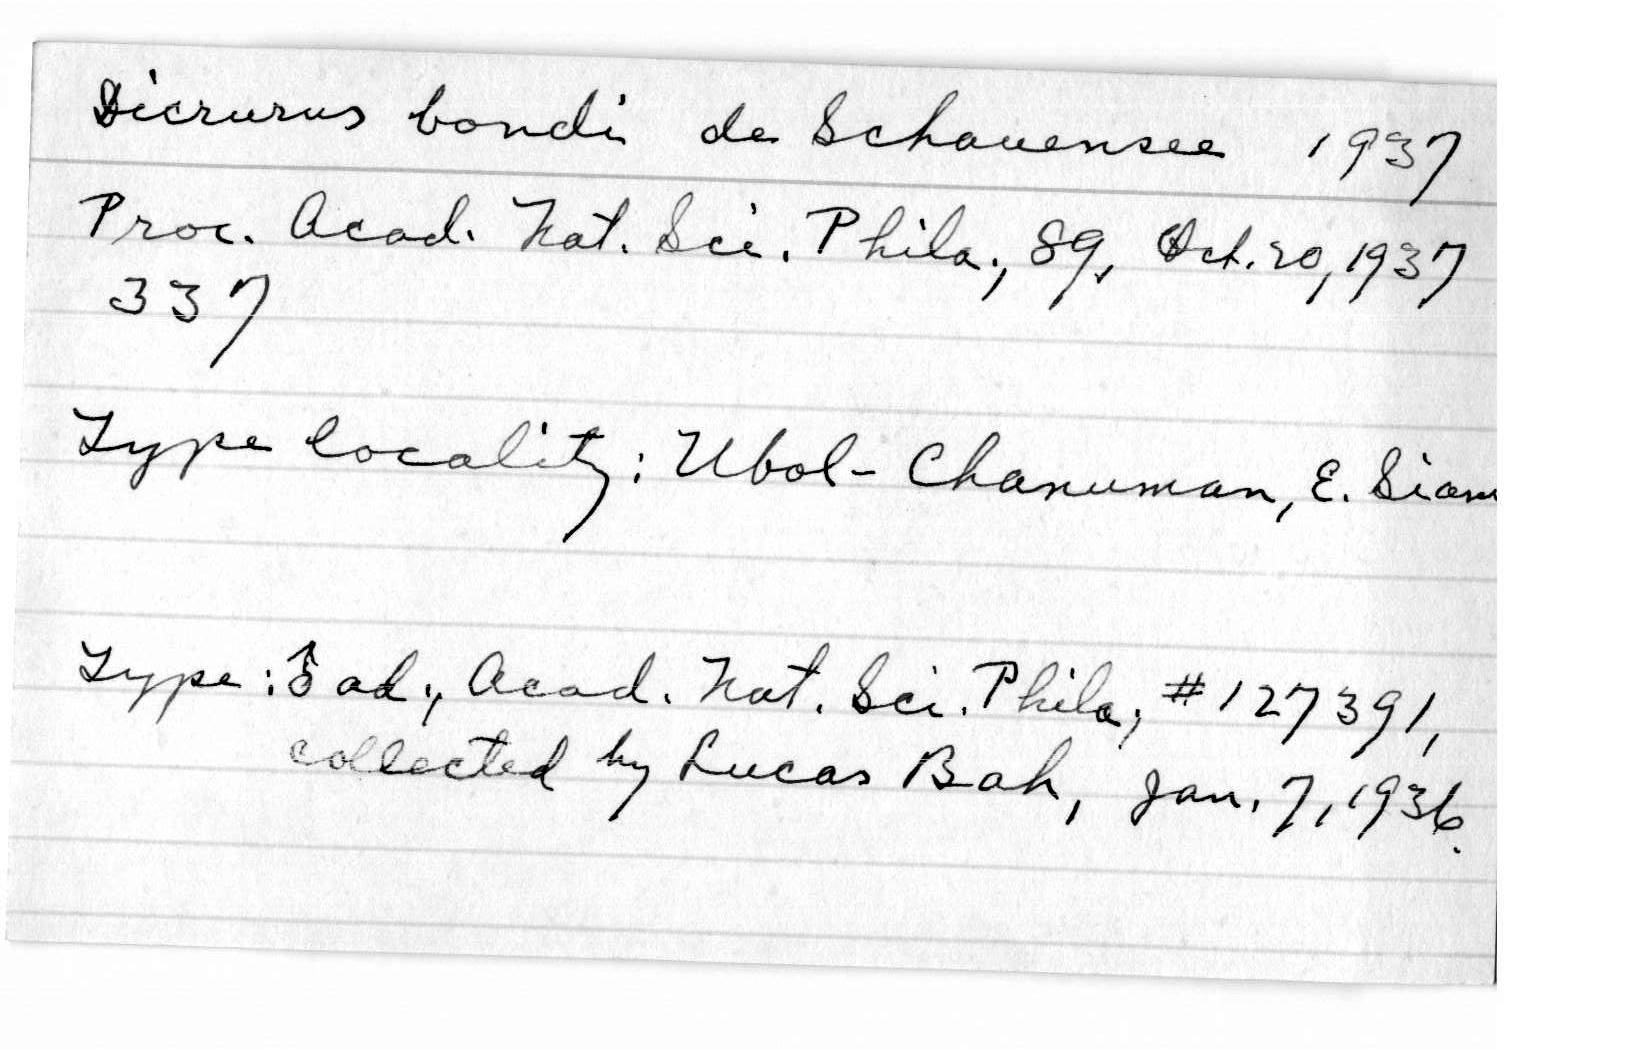 Dicrurus bondi de Schauensee 1937
Proc. Acad. Nat. Sci. Phila., 89, Oct. 20, 1937
337
Type locality: Ubol-Chanuman, E. Siam
Type: ♂ ad., Acad. Nat. Sci. Phila, #127391,
collected by Lucas Bah, Jan. 7, 1936.